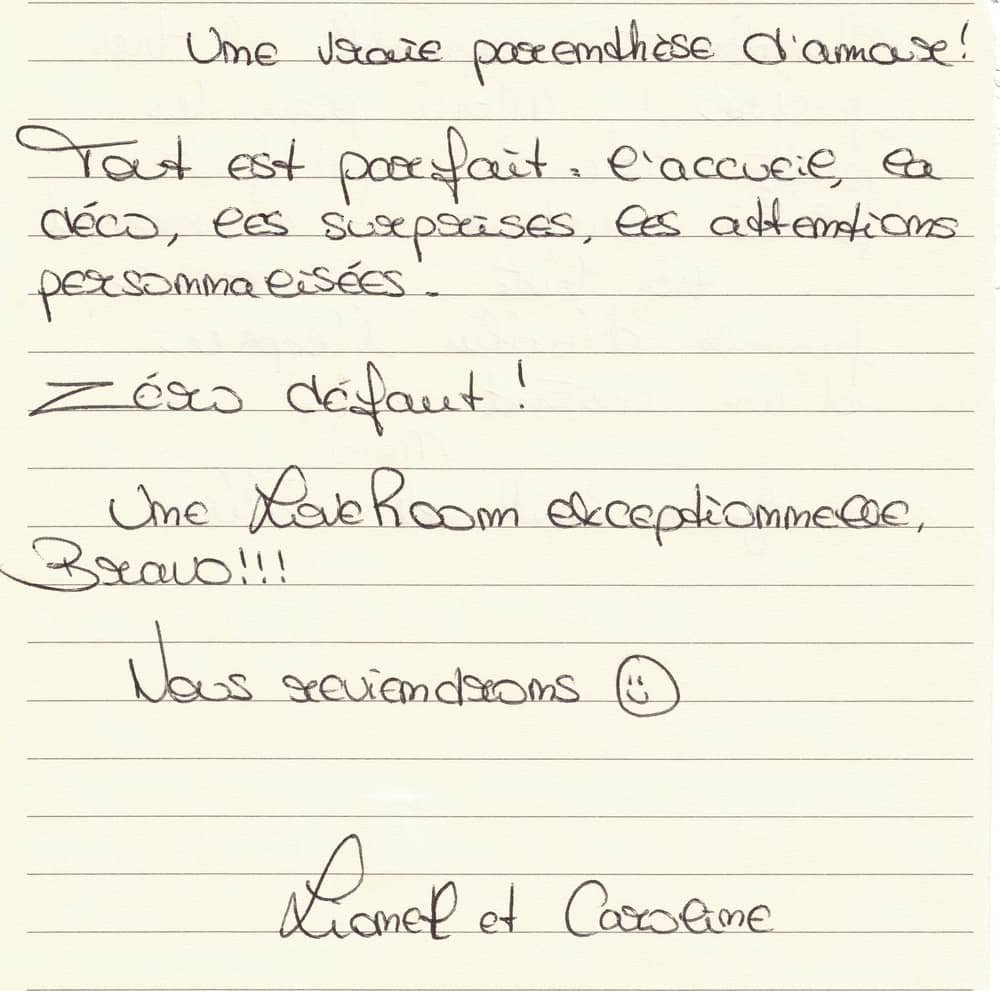 Une vraie parenthèse d'amour!
Tout est parfait : l'accueil, la
déco, les surprises, les attentions
personnalisées.
Zéro défaut !
Une LoveRoom exceptionnelle,
Bravo!!!
Nous reviendrons ☺
Lionel et Caroline